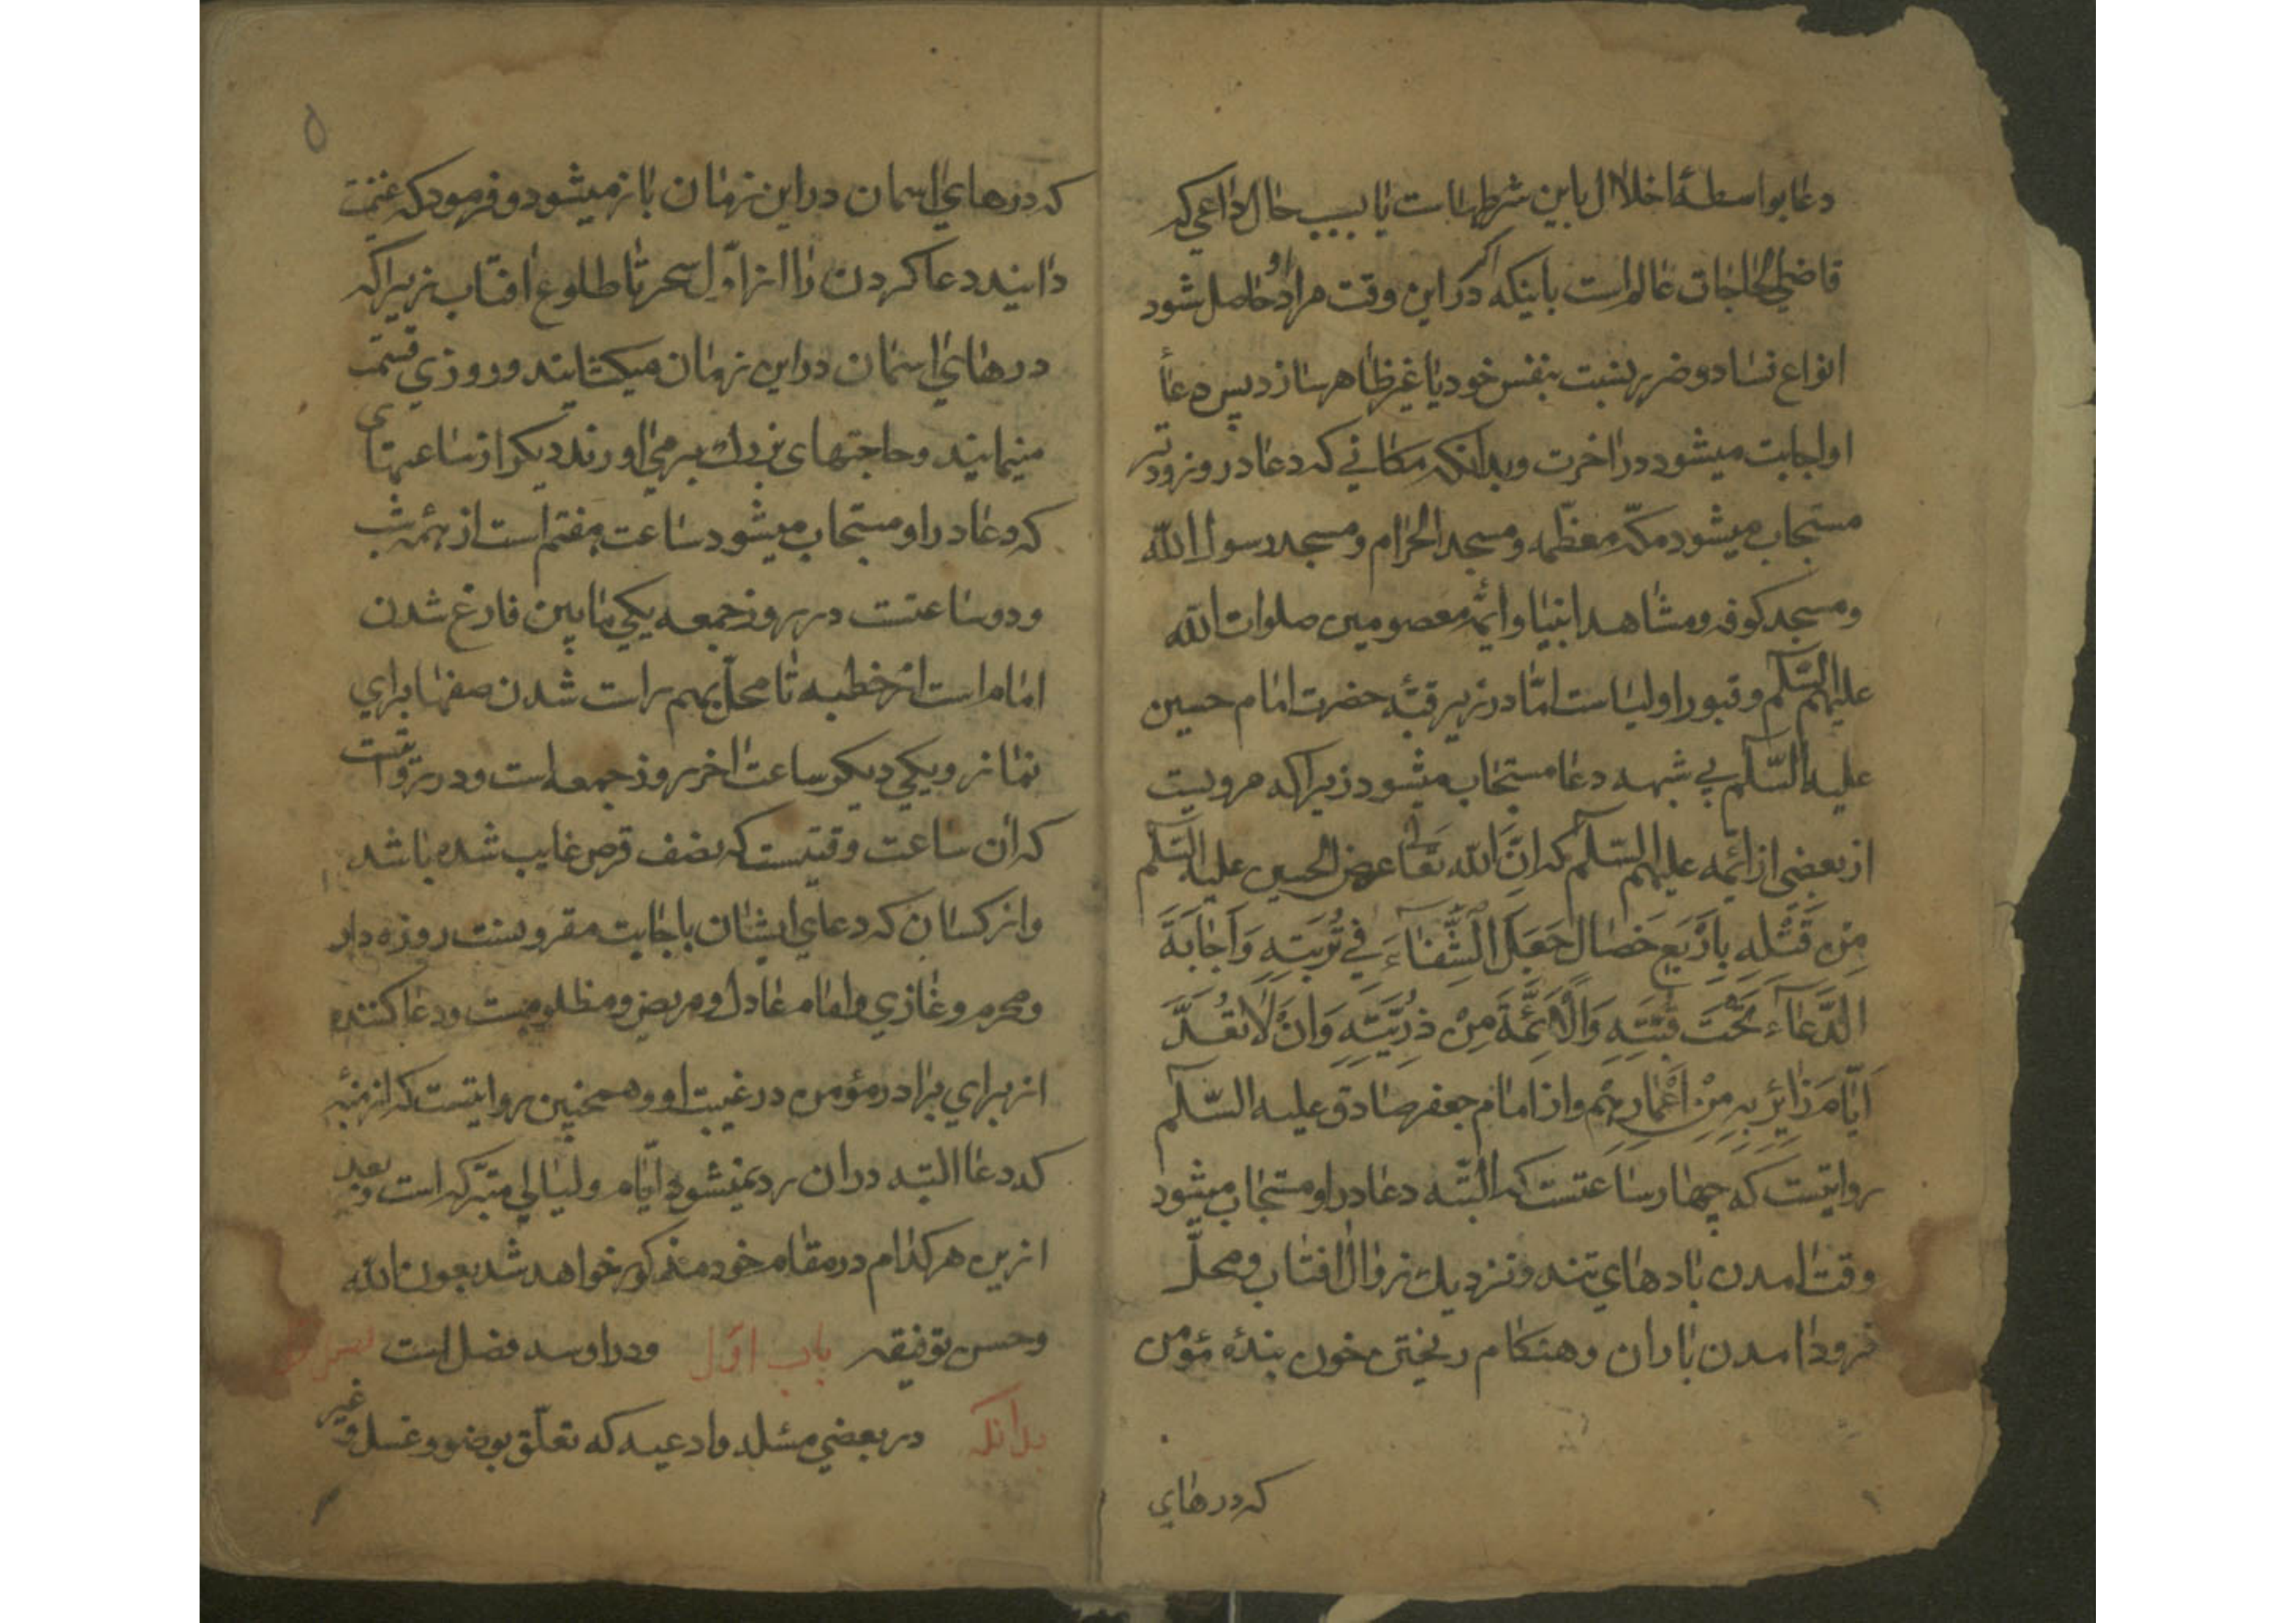 دعا بواسطهٔ اخلال باین شرطهاست یا بسبب حال داعی که
قاضی الحاجات عالم است باینکه اگر در این وقت مراد او حاصل شود
انواع فساد و ضرر بنسبت بنفس خود یا غیر ظاهر سازد پس دعأ
او اجابت میشود در اخرت و بدانکه مکانی که دعا در و زودتر
مستجاب میشود مکّه معظّمه و مسجد الحرام و مسجد رسول الله
و مسجد کوفه و مشاهد انبیا و ائمّه معصومین صلوات الله
علیهم السّلم و قبور اولیاست امّا در زیر قبّهٔ حضرت امام حسین
علیه السّلم بی شبهه دعا مستجاب میشود زیرا که مرویست
از بعضی از ائمّه علیهم السّلم که انَّ الله تعالی عوض الحسین علیه السّلم
مِنْ قَتْلِهِ بِاَرْبَعِ خصٰال جَعَلَ الشِّفٰاءَ فی تُرْبَتِهِ وَ اَجٰابَةَ
الدُّعٰآءِ تَحْتَ قُبَّتِهِ وَالْاَئِمَّةَ مِنْ ذُرِّیَّتِهِ وَانْ لٰا تُعَدَّ
اَیّٰامَ زٰائِرِیهِ مِنْ اَعْمٰارِهِمْ و از امام جعفر صادق علیه السّلم
روایتست که چهار ساعتست که البتّه دعا در او مستجاب میشود
وقت امدن بادهای تند و نزدیک زوال افتاب و محلّ
فرود امدن باران و هنکام ریختن خون بندهٔ مؤمن
که درهای
۵
که درهای اسمان در این زمان باز میشود و فرمود که غنیمت
دانید دعا کردن را از اوّل سحر تا طلوع افتاب زیرا که
درهای اسمان در این زمان میکشایند و روزی قسمت
مینمایند و حاجتهای بزرك بر می اورند دیکر از ساعتهای
که دعا در او مستجاب میشود ساعت هفتم است از نیمه شب
و دو ساعتست در روز جمعه یکی مابین فارغ شدن
امام است از خطبه تا محلّ بهم راست شدن صفها برای
نماز و یکی دیکر ساعت اخر روز جمعه است و در روایتست
که ان ساعت وقتیست که نصف قرص غایب شده باشد
و از کسان که دعای ایشان باجابت مقرونست روزه دار
و محرم و غازی و امام عادل و مریض و مظلومست و دعا کننده
از برای برادر مؤمن در غیبت او و همچنین روایتست که ازمنهٔ
که دعا البتّه در ان رد نمیشود ایّام و لیالی متبرّکه است و بعد
از این هر کدام در مقام خود مذکور خواهد شد بعون الله
و حسن توفیقه باب اوّل و در او سه فصل است فصل
بدانکه در بعضی مسئله و ادعیه که تعلّق بوضو و غسل و غیر